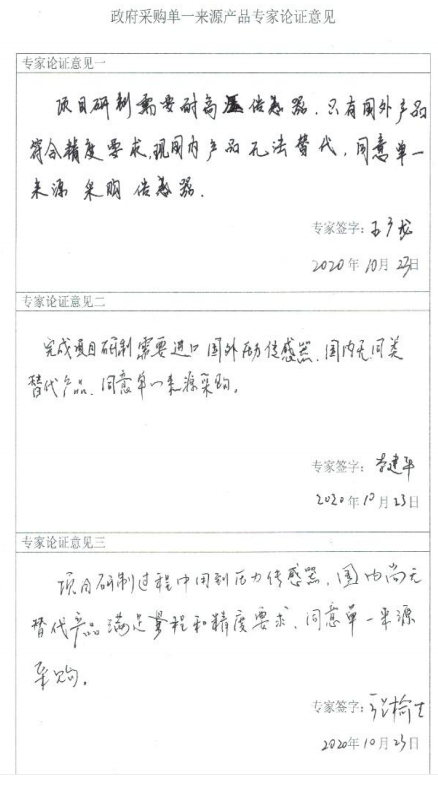 政府采购单一来源产品专家论证意见
专家论证意见一
项目研制需要耐高温传感器，只有国外产品
符合精度要求，现国内产品无法替代，同意单一
来源采购传感器.
专家签字：
2020年10月23日
专家论证意见二
完成项目研制需要进口国外压力传感器，国内无同类
替代产品，同意单一来源采购。
专家签字：李建平
2020年10月23日
专家论证意见三
项目研制过程中用到压力传感器，国内尚无
替代产品满足量程和精度要求、同意单一来源
采购。
专家签字：
2020年10月23日